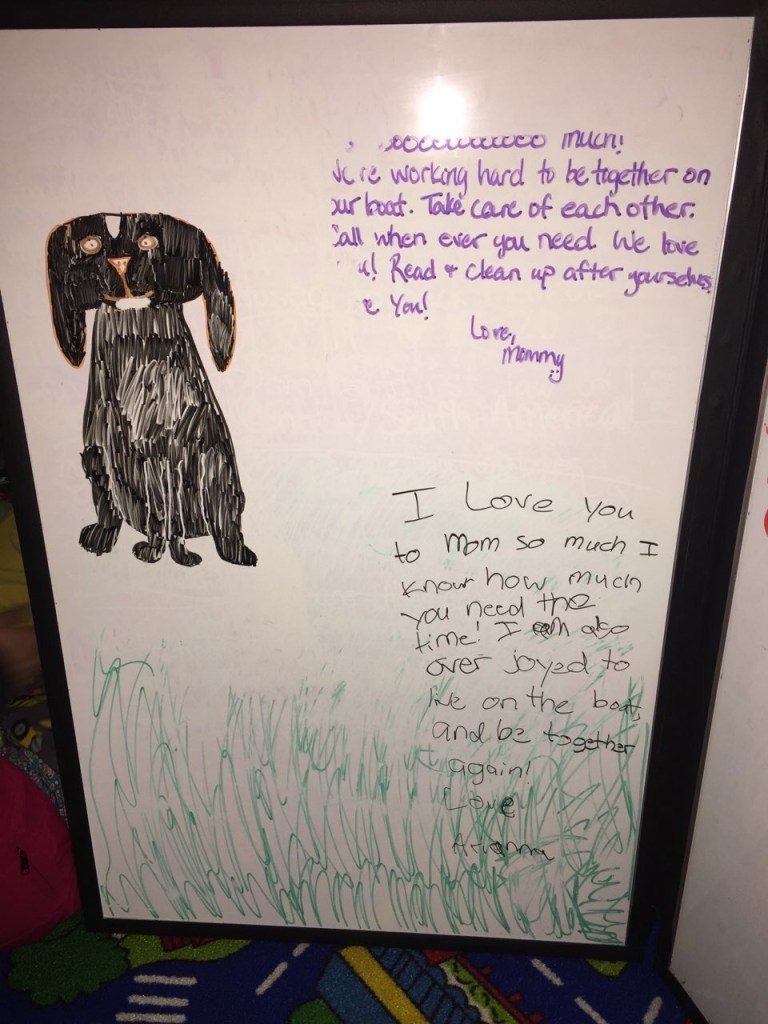 much!
working hard to be together on
boat. Take care of each other.
when ever you need. We love
Read + clean up after yourselves
You!
Love,
Mommy
I Love you
to mom so much I
know how much
you need the
time! I also
over joyed to
live on the boat,
and be together
again!
Love
Arianna